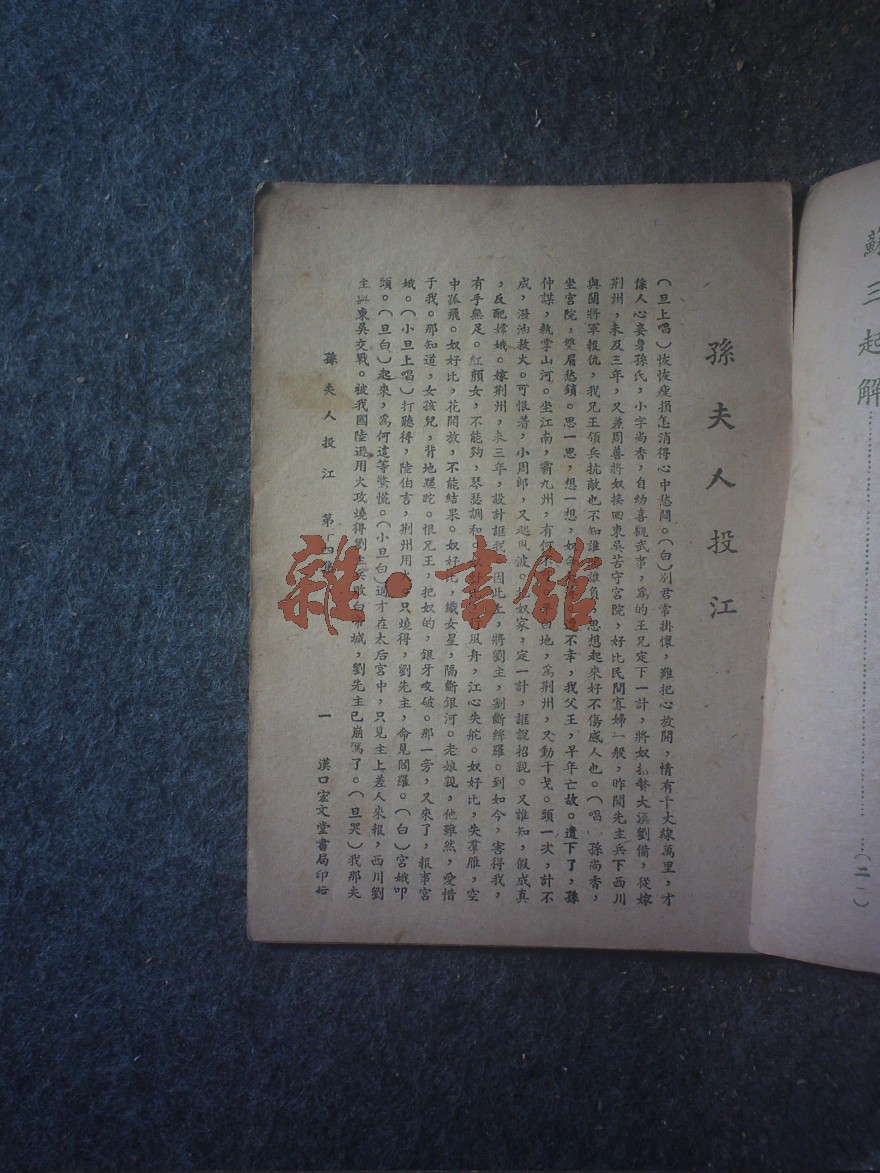 蘇三起解……(二一)
孫夫人投江
(旦上唱)恢恢瘦損怎消得心中愁悶。(白)別君常掛懷,難把心放開,情有千丈線萬里,才
像人心妾身孫氏,小字尚香,自幼喜觀武事,爲的王兄定下一計,將奴 大漢劉備,從嫁
荆州,未及三年,又差周善將奴接回東吳苦守宮院,好比民間寡婦一般,昨聞先主兵下西川
與關將軍報仇,我兄王領兵抗敵也不知誰 誰負 思想起來好不傷感人也。(唱 孫尚香,
坐宮院,雙眉愁鎖。思一思,想一想,奴 不幸,我父王,早年亡故。遺下了,孫
仲謀,執掌山河。坐江南,霸九州,有何不 白地,爲荆州,又動干戈。頭一次,計不
成,潑油救火。可恨著,小周郎,又起風波。 奴家,定一計,誆說招親。又誰知,假成真
,反配嫦娥。嫁荆州,未三年,設計誆我 因此上,將劉主,割斷絲羅。到如今,害得我,
有手無足。紅顏女,不能夠,琴瑟調和。 風舟,江心失舵。奴好比,失羣雁,空
中孤飛。奴好比,花開放,不能結果。奴好比,織女星,隔斷銀河。老娘親,他雖然,愛惜
于我。那知道,女孩兒,背地蹉跎。恨兄王,把奴的,銀牙咬破。那一旁,又來了,報事宮
娥。(小旦上唱)打聽得,陸伯言,荆州用 只燒得,劉先主,命見閻羅。(白)宮娥叩
頭。(旦白)起來,爲何這等驚慌。(小旦白)適才在太后宮中,只見主上差人來報,西川劉
主與東吳交戰。被我國陸遜用火攻燒得劉主兵敗白帝城,劉先主已崩駕了。(旦哭)我那夫
孫夫人投江 第 四 一 漢口宏文堂書局印行
雜·書館